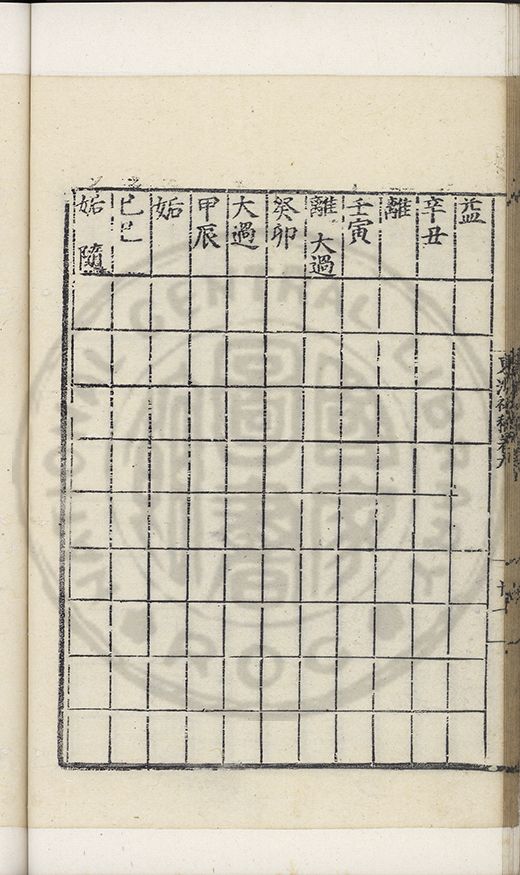 益
辛丑
離
壬寅
離 大過
癸卯
大過
甲辰
姤
乙巳
姤 隨
NATIONAL CENTRAL LIBRARY
R.O.C.